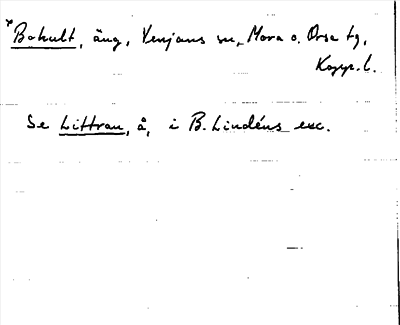 *Bokult, äng, Venjans sn, Mora o. Orsa tg,
Kopp. l.
Se Littran, å, i B. Lindéns exc.